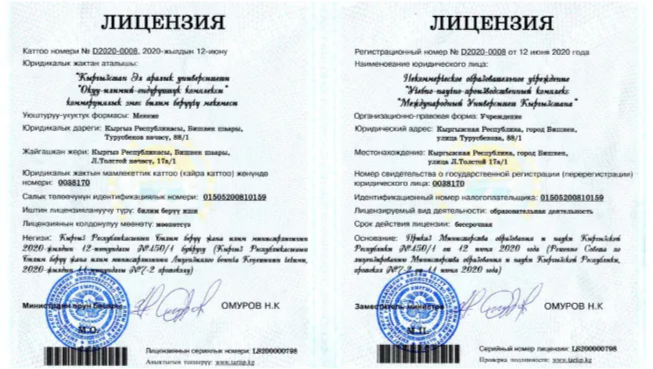 ЛИЦЕНЗИЯ
Каттоо номери № D2020-0008, 2020-жылдын 12-июну
Юридикалык жактан аталышы:
"Кыргызстан Эл аралык университети
"Окуу-илимий-өндүрүштүк комплекси"
коммерциялык эмес билим берүүчү мекемеси
Уюштуруу-укуктук формасы: Мекеме
Юридикалык дареги: Кыргыз Республикасы, Бишкек шаары,
Турусбеков көчөсү, 88/1
Жайгашкан жери: Кыргыз Республикасы, Бишкек шаары,
Л.Толстой көчөсү, 17а/1
Юридикалык жактын мамлекеттик каттоо (кайра каттоо) жөнүндө
номери: 0038170
Салык төлөөчүнүн идентификациялык номери: 01505200810159
Иштин лицензиялануучу түрү: билим берүү иши
Лицензиянын колдонулуу мөөнөтү: мөөнөтсүз
Негизи: Кыргыз Республикасынын Билим берүү жана илим министрлигинин
2020-жылдын 12-июнундагы №450/1 буйругу (Кыргыз Республикасынын
Билим берүү жана илим министрлигинин Лицензиялоо боюнча Кеңешинин чечими,
2020-жылдын 11-июнундагы №7-2 протоколу)
Министрдин орун басары
ОМУРОВ Н.К
М.О.
Лицензиянын сериялык номери: LS200000798
Аныктыгын текшерүү: www.tartip.kg
ЛИЦЕНЗИЯ
Регистрационный номер № D2020-0008 от 12 июня 2020 года
Наименование юридического лица:
Некоммерческое образовательное учреждение
"Учебно-научно-производственный комплекс
"Международный Университет Кыргызстана"
Организационно-правовая форма: Учреждение
Юридический адрес: Кыргызская Республика, город Бишкек,
улица Турусбекова, 88/1
Местонахождение: Кыргызская Республика, город Бишкек,
улица Л.Толстого, 17а/1
Номер свидетельства о государственной регистрации (перерегистрации)
юридического лица: 0038170
Идентификационный номер налогоплательщика: 01505200810159
Лицензируемый вид деятельности: образовательная деятельность
Срок действия лицензии: бессрочная
Основание: Приказ Министерства образования и науки Кыргызской
Республики №450/1 от 12 июня 2020 года (Решение Совета по
лицензированию Министерства образования и науки Кыргызской Республики,
протокол №7-2 от 11 июня 2020 года)
Заместитель министра
ОМУРОВ Н.К
М.П.
Серийный номер лицензии: LS200000798
Проверка подлинности: www.tartip.kg